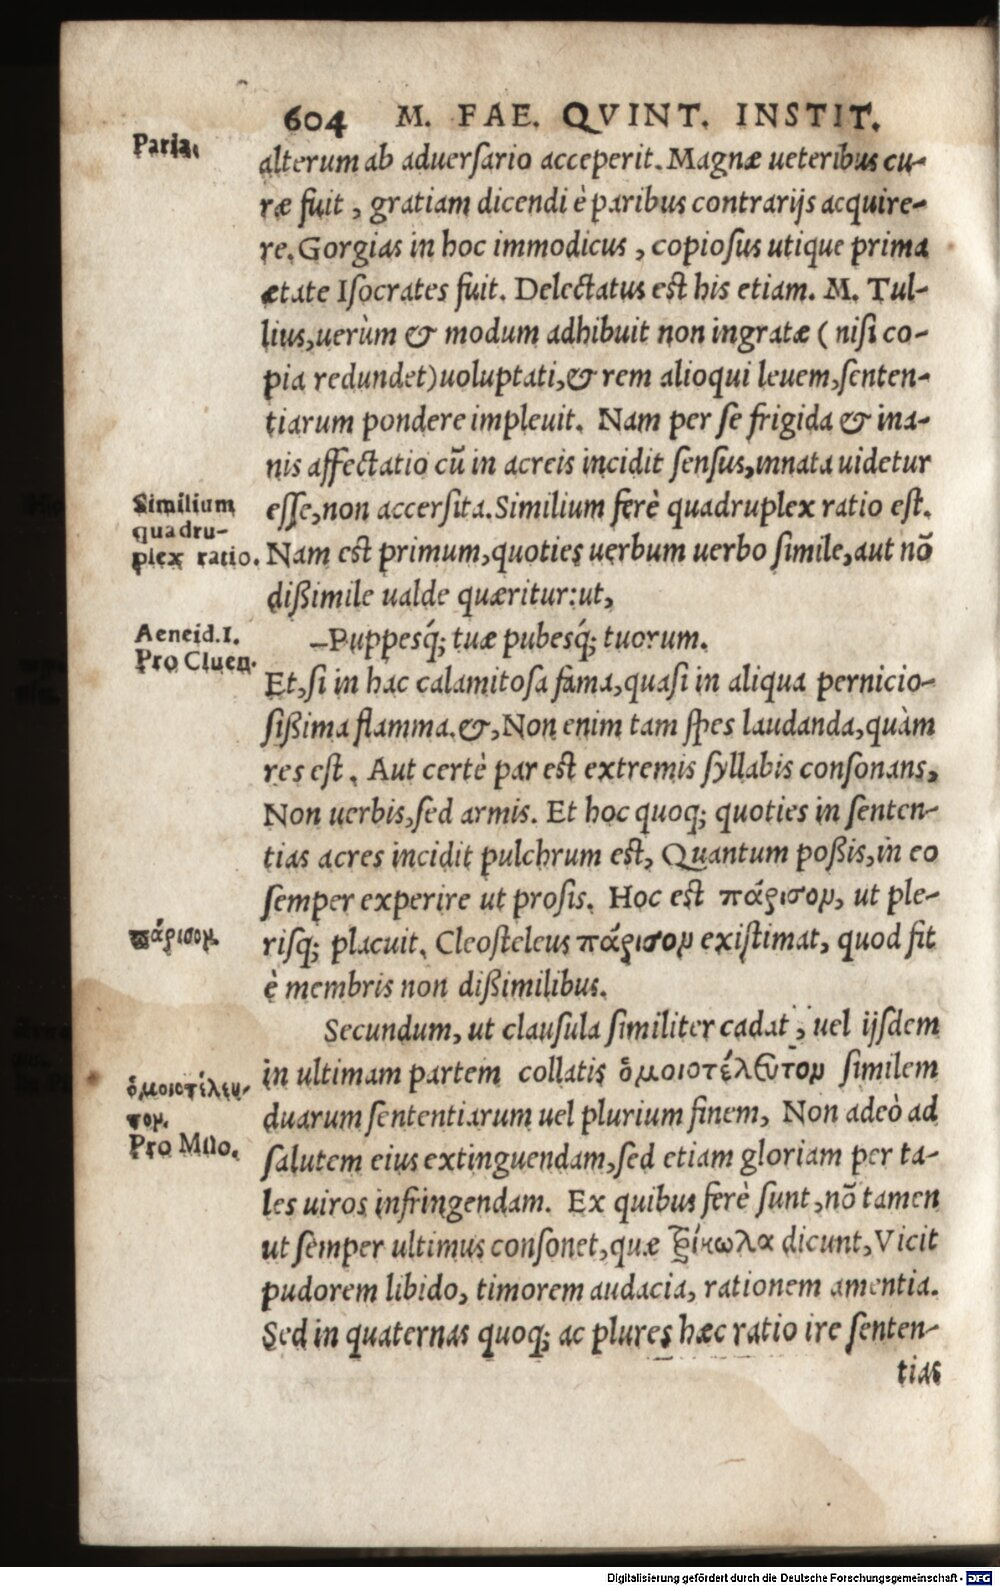 604 M. FAE. QVINT. INSTIT.
Paria.
alterum ab aduersario acceperit. Magnæ ueteribus cu-
ræ fuit, gratiam dicendi è paribus contrarijs acquire-
re. Gorgias in hoc immodicus, copiosus utique prima
ætate Isocrates fuit. Delectatus est his etiam. M. Tul-
lius, uerùm & modum adhibuit non ingratæ (nisi co-
pia redundet) uoluptati, & rem alioqui leuem, senten-
tiarum pondere impleuit. Nam per se frigida & ina-
nis affectatio cũ in acreis incidit sensus, innata uidetur
Similium
quadru-
plex ratio.
esse, non accersita. Similium ferè quadruplex ratio est.
Nam est primum, quoties uerbum uerbo simile, aut nõ
dißimile ualde quæritur: ut,
Aeneid.I.
Pro Cluen.
–Puppesq́; tuæ pubesq́; tuorum.
Et, si in hac calamitosa fama, quasi in aliqua pernicio-
sißima flamma. &, Non enim tam spes laudanda, quàm
res est. Aut certè par est extremis syllabis consonans,
Non uerbis, sed armis. Et hoc quoq; quoties in senten-
tias acres incidit pulchrum est, Quantum poßis, in eo
semper experire ut prosis. Hoc est πάρισον, ut ple-
πάρισον.
risq; placuit. Cleosteleus πάρισον existimat, quod fit
è membris non dißimilibus.
Secundum, ut clausula similiter cadat, uel ijsdem
ὁμοιοτέλευ-
τον.
Pro Milo.
in ultimam partem collatis ὁμοιοτέλευτον similem
duarum sententiarum uel plurium finem, Non adeò ad
salutem eius extinguendam, sed etiam gloriam per ta-
les uiros infringendam. Ex quibus ferè sunt, nõ tamen
ut semper ultimus consonet, quæ τρίκωλα dicunt, Vicit
pudorem libido, timorem audacia, rationem amentia.
Sed in quaternas quoq; ac plures hæc ratio ire senten-
tias
Digitalisierung gefördert durch die Deutsche Forschungsgemeinschaft - DFG